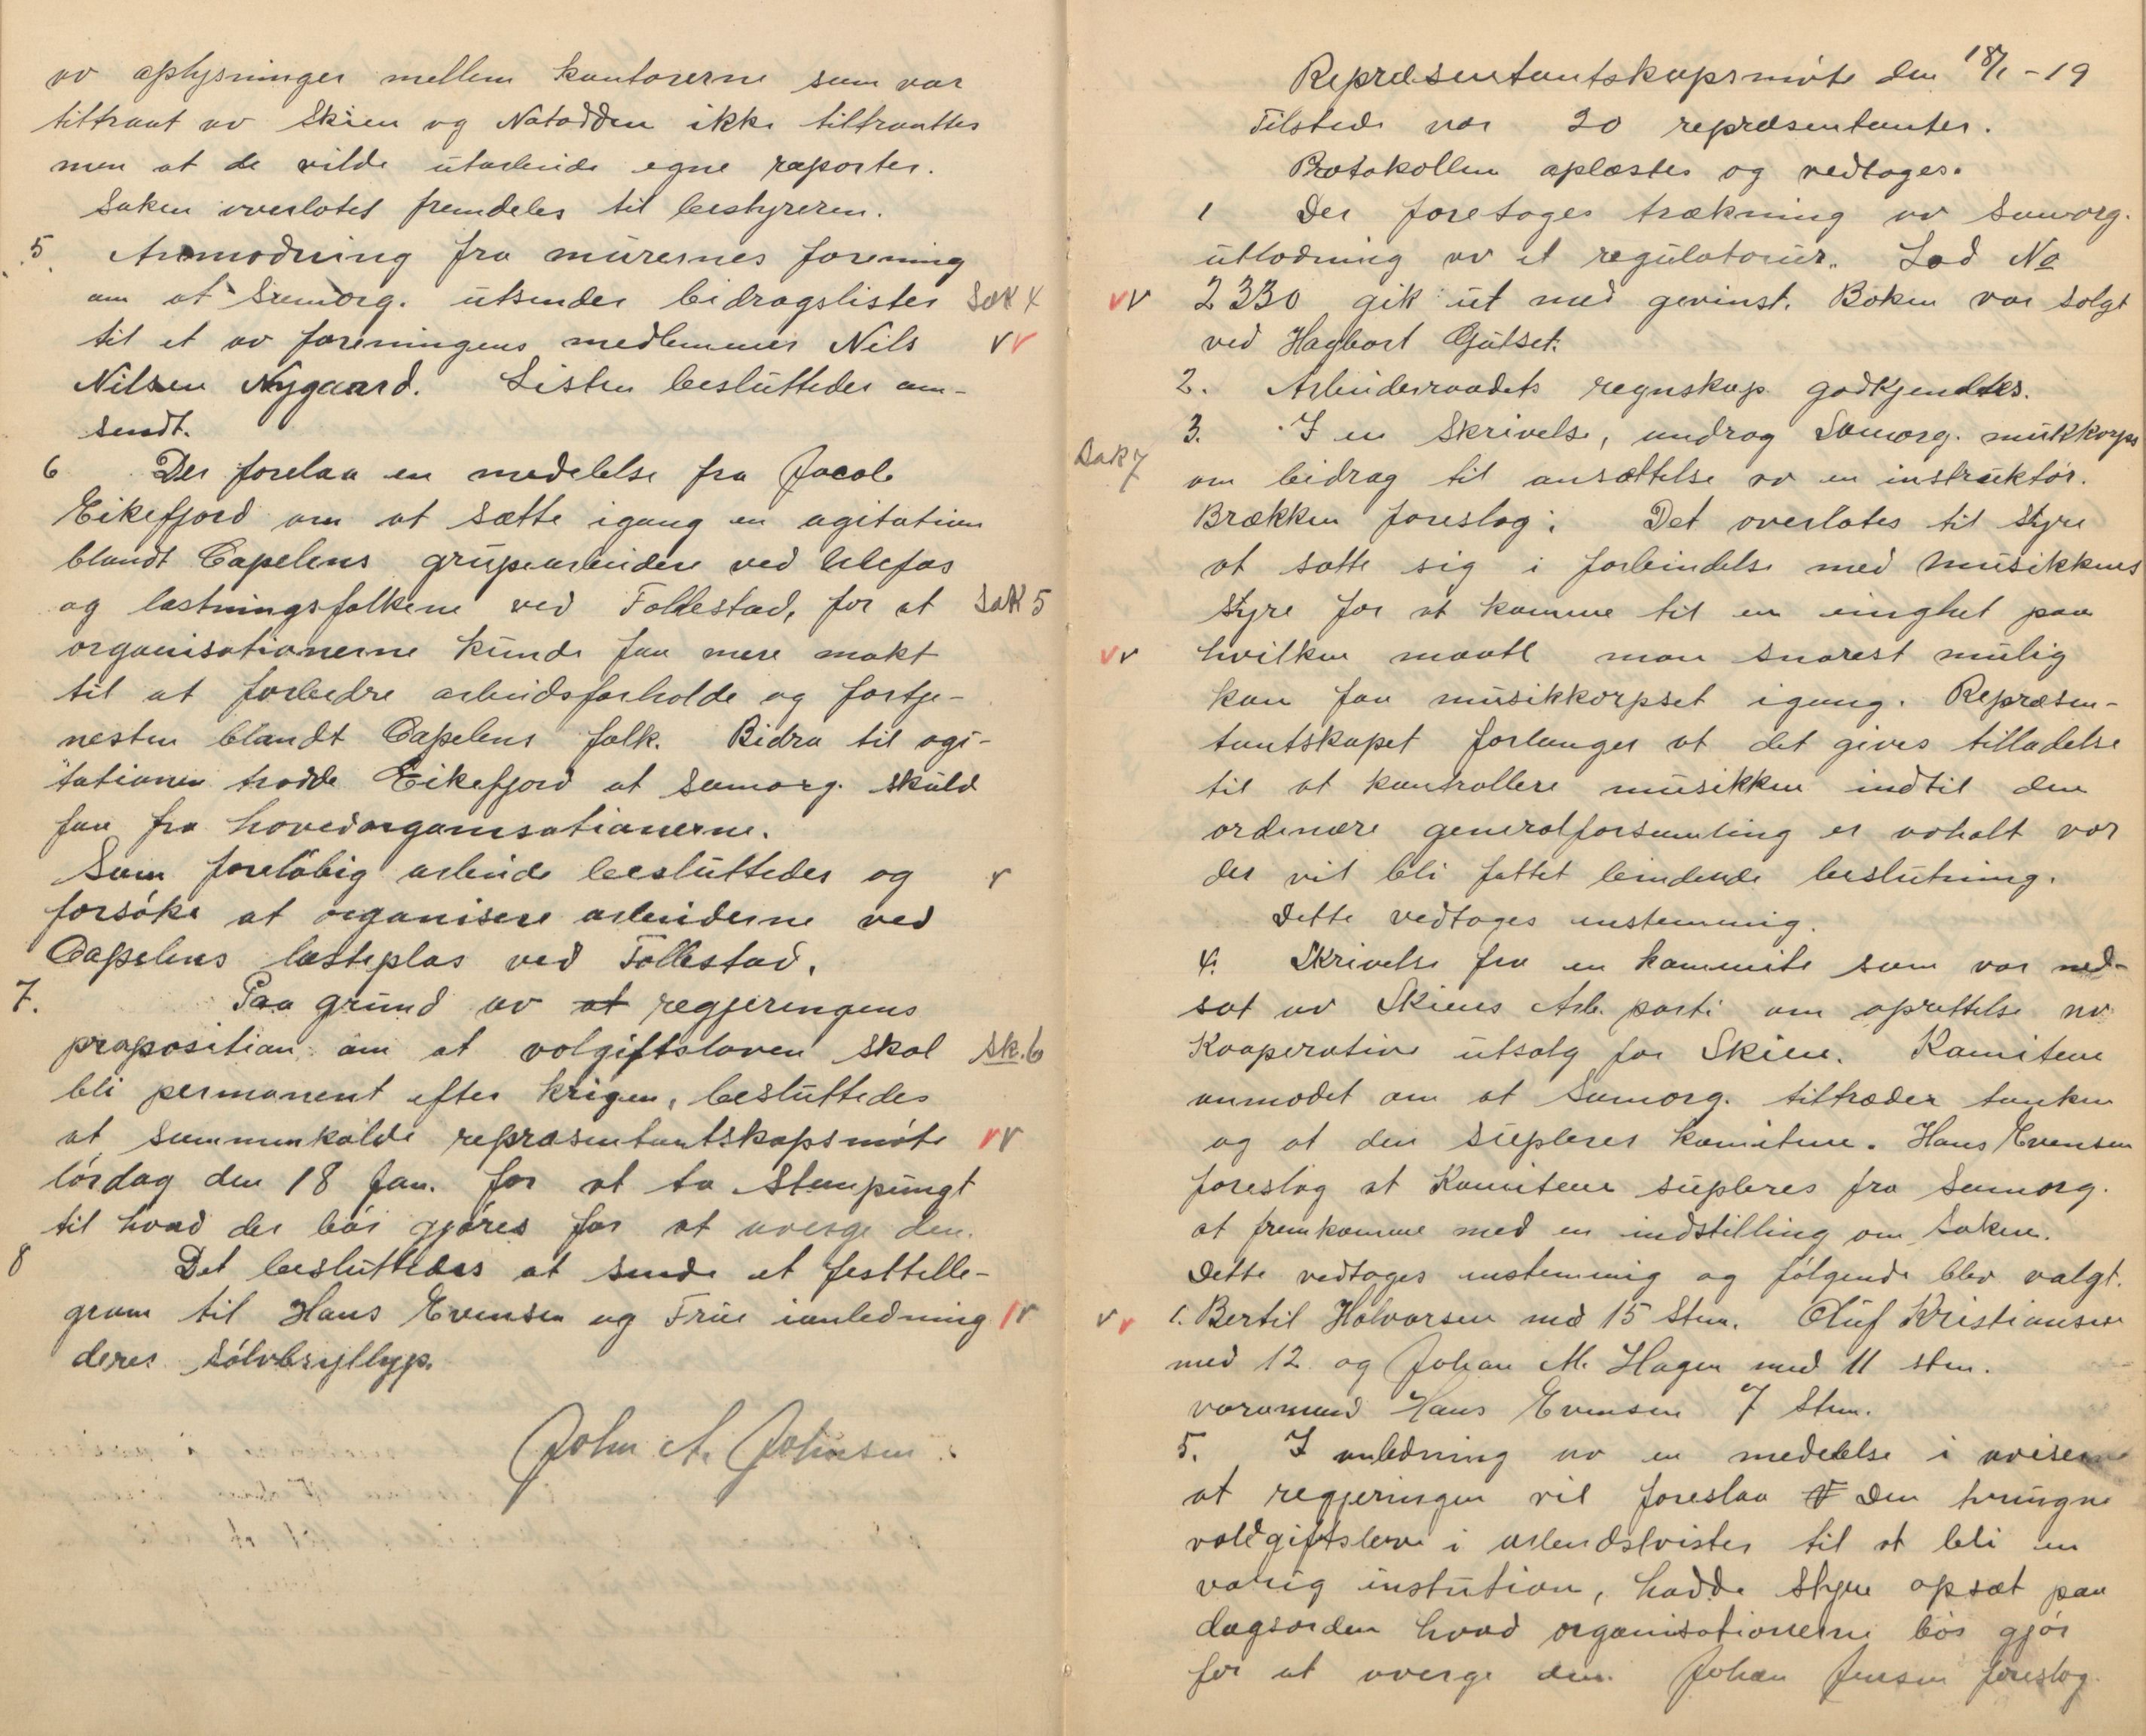 av oplysninger mellem kontorerne som var
tiltraat av Skien og Notodden ikke tiltraattes
men at de vilde utarbeide egne raporter.
Saken overlotes fremdeles til bestyreren.
5. Anmodning fra murernes forening
om at Samorg. utsender bidragslister Sak 4
til et av foreningens medlemmer Nils vv
Nilsen Nygaard. Listen besluttedes om-
sendt.
6 Der forelaa en medelelse fra Jacob
Eikefjord om at sætte igang en agitation
blandt Capelens grupearbeidere ved Ulefos
og lastningsfolkene ved Tollestad, for at Sak 5
organisationerne kunde faa mere makt
til at forbedre arbeidsforholde og fortje-
nesten blandt Capelens folk. Bidra til agi-
tationen trodde Eikefjord at samorg. skuld
faa fra hovedorganisationerne.
Som foreløbig arbeide besluttedes og v
forsøke at organisere arbeiderne ved
Capelens lasteplas ved Tollestad.
7. Paa grund av at regjeringens
proposition om at volgiftsloven skal Sk. 6
bli permanent efter krigen, besluttedes
at sammenkalde repræsentantskapsmøte vv
lørdag den 18 Jan. for at ta stanpungt
til hvad der bør gjøres for at averge den.
8 Det besluttedes at sende et festtelle-
gram til Hans Evensen og Frue ianledning vv
deres sølvbryllyp.
John A. Johnsen
Repræsentantskapsmøte den 18/1 -19
Tilstede var 20 repræsentanter.
Protokollen oplæstes og vedtoges.
1 Der foretoges trækning av samorg.
utlodning av et regulatorur. Lod No
vv 2330 gik ut med gevinst. Boken var solgt
ved Hagbart Gulset.
2. Arbeiderraadets regnskap godkjendtes.
3. I en skrivelse, androg Samorg. mukkorps
Sak 7 om bidrag til ansættelse av en instruktør.
Brækken foreslog: Det overlates til styre
at sætte sig i forbindelse med musikkens
styre for at komme til en einghet paa
vv hvilken maate man snarest mulig
kan faa musikkorpset igang. Repræsen-
tantskapet forlanger at det gives tilladelse
til at kontrollere musikken indtil den
ordinære generalforsamling er avholt vor
der vil bli fattet bindende beslutning.
Dette vedtoges enstemmig.
4. Skrivelse fra en kommite som var ned-
sat av Skiens Arb. parti om oprettelse av
Kooperative utsalg for Skien. Kamiteen
anmodet om at Samorg. tiltræder tanken
og at den supleres kamiteen. Hans Evensen
foreslog at Kamiteen supleres fra Samorg.
at fremkomme med en indstilling om saken.
Dette vedtoges enstemmig og følgende blev valgt.
vv 1. Bertil Halvorsen med 15 stm. Oluf Kristiansen
med 12 og Johan M. Hagen med 11 stm.
varamand Hans Evensen 7 Stm.
5. I anledning av en medelelse i aviserne
at regjeringen vil foreslaa Den tvungne
voldgiftslove i arbeidstvister til at bli en
varig instution, hadde styre opsat paa
dagsorden hvad organisationerne bør gjør
for at averge den. Johan Jensen foreslog